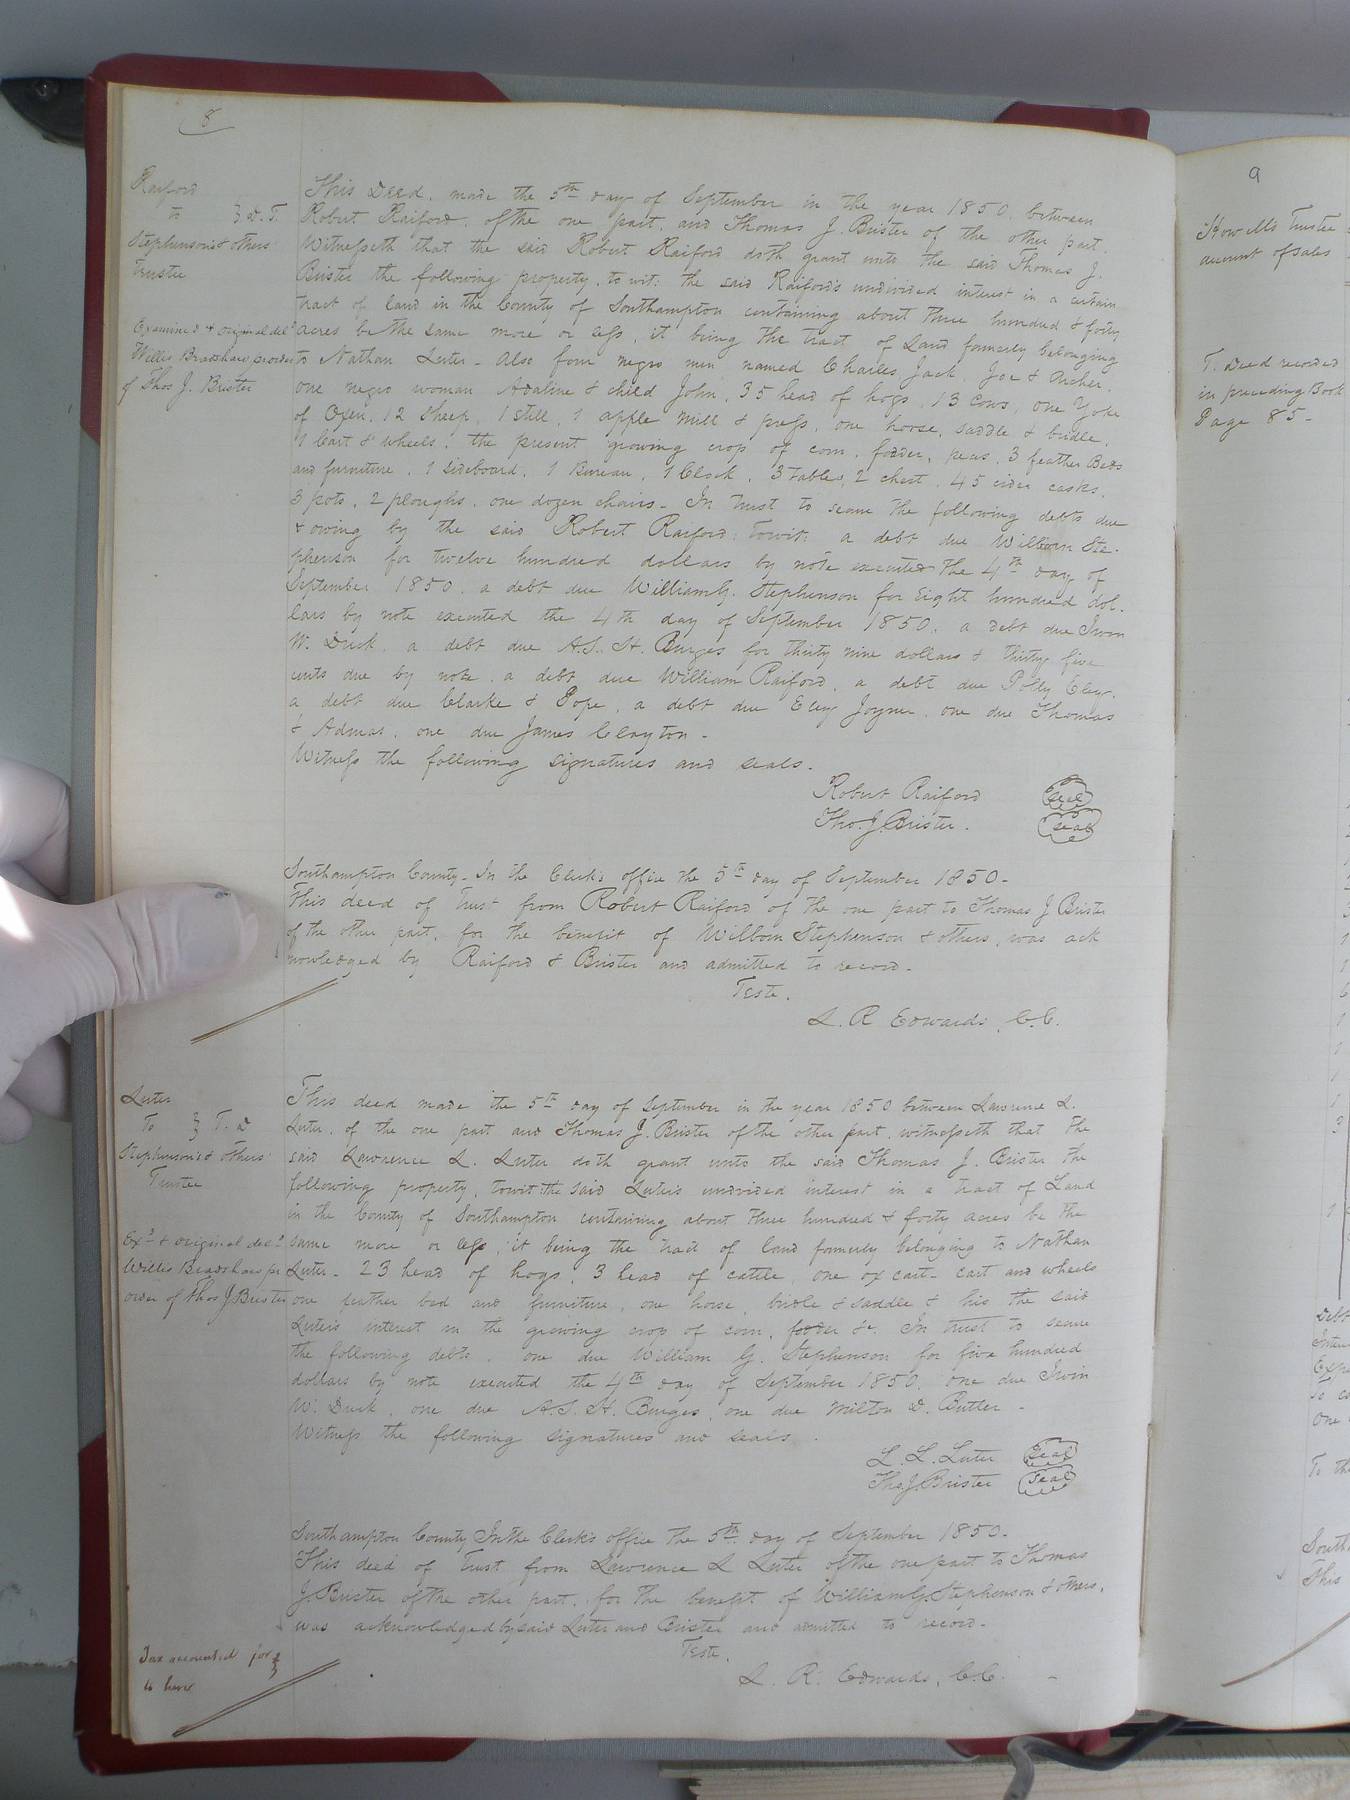 8
Raiford
to } D. T.
Stephenson's & others
Trustee
Examined & original deld
Willis Bradshaw pr order
of Thos J. Brister
This Deed, made the 5th day of September in the year 1850, between
Robert Raiford, of the one part, and Thomas J. Brister of the other part,
Witnesseth that the said Robert Raiford doth grant unto the said Thomas J.
Brister the following property, to wit: the said Raiford's undivided interest in a certain
tract of land in the County of Southampton containing about three hundred & forty
acres be the same more or less, it being the tract of Land formerly belonging
to Nathan Luter - Also four negro men named Charles, Jack, Joe & Archer,
one negro woman Adaline & child John, 35 head of hogs, 13 cows, one Yoke
of Oxen, 12 Sheep, 1 still, 1 apple mill & press, one horse, saddle & bridle,
1 Cart & wheels, the present growing crop of corn, fodder, peas, 3 feather Beds
and furniture, 1 Sideboard, 1 Bureau, 1 Clock, 3 tables, 2 chest, 45 cider casks,
3 pots, 2 ploughs, one dozen chairs - In trust to secure the following debts due
& owing by the said Robert Raiford, towit: a debt due William Ste-
phenson for twelve hundred dollars by note executed the 4th day of
September 1850, a debt due William G. Stephenson for Eight hundred dol-
lars by note executed the 4th day of September 1850, a debt due Irwin
W. Duck, a debt due A. S. H. Burges for thirty nine dollars & thirty five
cents due by note, a debt due William Raiford, a debt due Polly Eley,
a debt due Clarke & Pope, a debt due Eley Joyner, one due Thomas
& Adams, one due James Clayton -
Witness the following signatures and seals.
Robert Raiford Seal
Tho. J. Brister. Seal
Southampton County - In the Clerk's office the 5th day of September 1850 -
This deed of trust from Robert Raiford of the one part to Thomas J Brister
of the other part, for the benefit of William Stephenson & others, was ack
nowledged by Raiford & Brister and admitted to record -
Teste,
L. R Edwards, C.C.
Luter
To } T. D
Stephenson's & others
Trustee
Exd & original deld
Willis Bradshaw pr
order of Thos J. Brister
This deed made the 5th day of September in the year 1850 between Lawrence L.
Luter, of the one part and Thomas J. Brister of the other part, witnesseth that the
said Lawrence L. Luter doth grant unto the said Thomas J. Brister the
following property, towit: the said Luter's undivided interest in a tract of Land
in the County of Southampton containing about three hundred & forty acres be the
same more or less, it being the tract of land formerly belonging to Nathan
Luter - 23 head of hogs, 3 head of cattle, one ox cart - cart and wheels
one feather bed and furniture, one horse, bridle & saddle & his the said
Luter's interest in the growing crop of corn, fodder &c. In trust to secure
the following debts, one due William G. Stephenson for five hundred
dollars by note executed the 4th day of September 1850, one due Irwin
W. Duck, one due A. S. H. Burges, one due Milton D. Butler -
Witness the following signatures and seals.
L. L. Luter Seal
Tho. J. Brister Seal
Southampton County In the Clerk's office the 5th day of September 1850 -
This deed of trust from Lawrence L Luter of the one part to Thomas
J. Brister of the other part, for the benefit of William G. Stephenson & others,
was acknowledged by said Luter and Brister and admitted to record -
Teste,
L. R. Edwards, C.C. -
Tax accounted for }
to here
9
Howells Trustee
account of sales
T. Deed recorded
in preceding Book
Page 85 -
Debt
To the
This